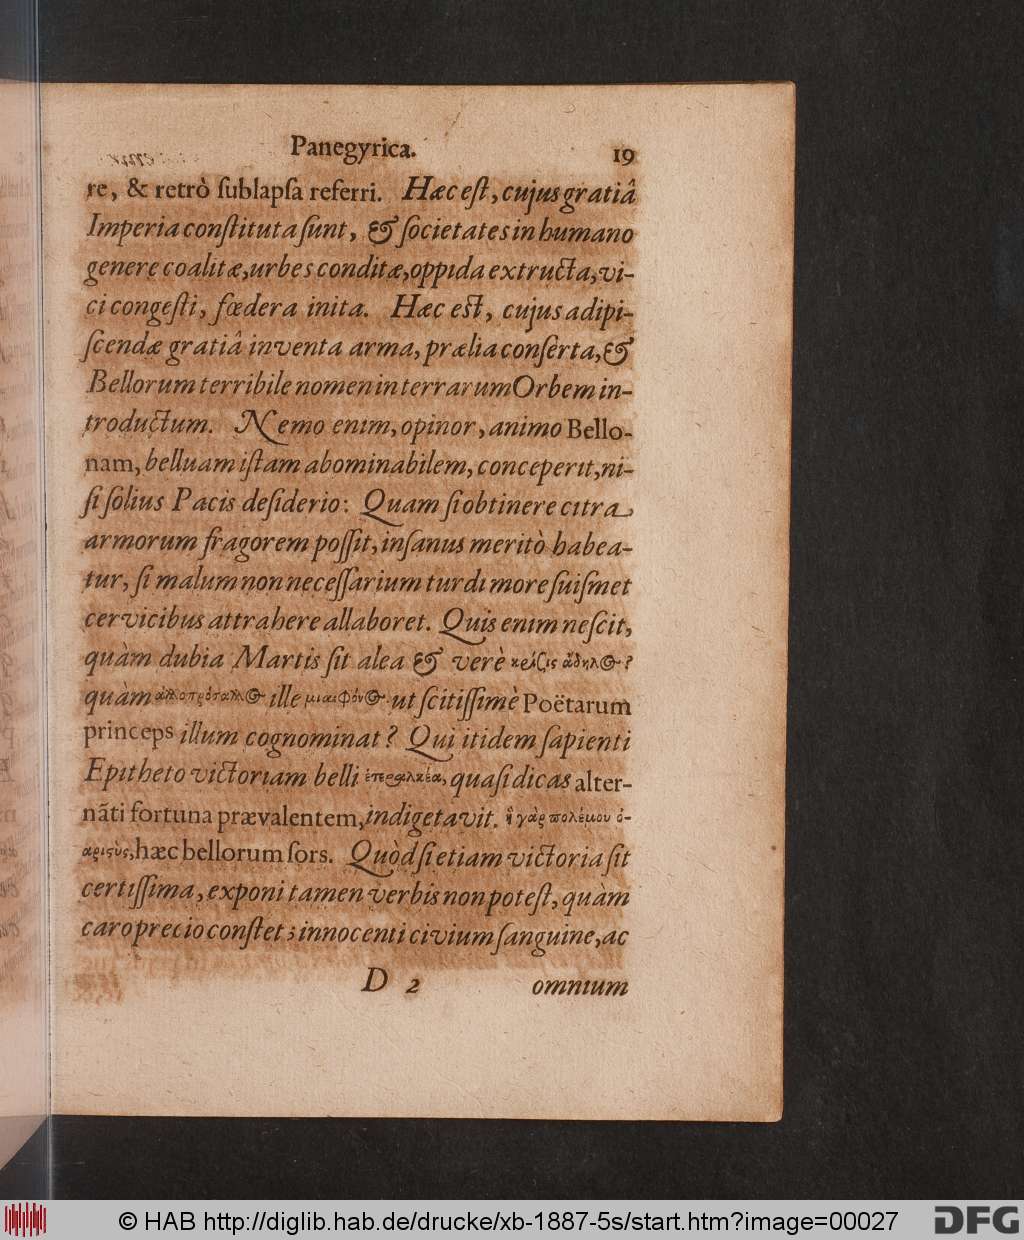 Panegyrica. 19
re, & retrò ſublapſa referri. Hæc eſt, cujus gratiâ
Imperia conſtituta ſunt, & ſocietates in humano
genere coalitæ, urbes conditæ, oppida extructa, vi-
ci congeſti, fœdera inita. Hæc eſt, cujus adipi-
ſcendæ gratiâ inventa arma, prælia conſerta, &
Bellorum terribile nomen in terrarum Orbem in-
troductum. Nemo enim, opinor, animo Bello-
nam, belluam iſtam abominabilem, conceperit, ni-
ſi ſolius Pacis deſiderio: Quam ſi obtinere citra
armorum fragorem poſſit, inſanus meritò habea-
tur, ſi malum non neceſſarium turdi more ſuiſmet
cervicibus attrahere allaboret. Quis enim neſcit,
quàm dubia Martis ſit alea & verè κρίζις ἄδηλος?
quàm ἀλλοπρόσαλλος ille μιαιφόνος ut ſcitiſſimè Poëtarum
princeps illum cognominat? Qui itidem ſapienti
Epitheto victoriam belli ἑτεραλκέα, quaſi dicas alter-
nãti fortuna prævalentem, indigetavit. ἢ γὰρ πολέμου ὀ-
αριςὺς, hæc bellorum ſors. Quòd ſi etiam victoria ſit
certiſſima, exponi tamen verbis non poteſt, quàm
caro precio conſtet; innocenti civium ſanguine, ac
D 2 omnium
© HAB http://diglib.hab.de/drucke/xb-1887-5s/start.htm?image=00027
DFG